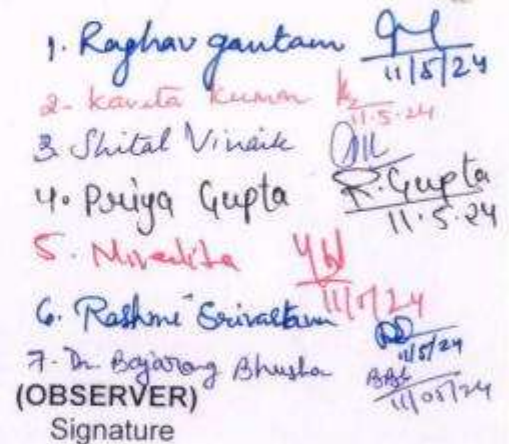 1. Raghav gautam
11/5/24
2- Kavita Kumari
11.5.24
3. Shital Vinaik
4. Priya Gupta R. Gupta
11.5.24
5. Nivedita
11/5/24
6. Rashmi Srivastava
11/5/24
7- Dr. Bajarang Bhushan
BBh
11/05/24
(OBSERVER)
Signature